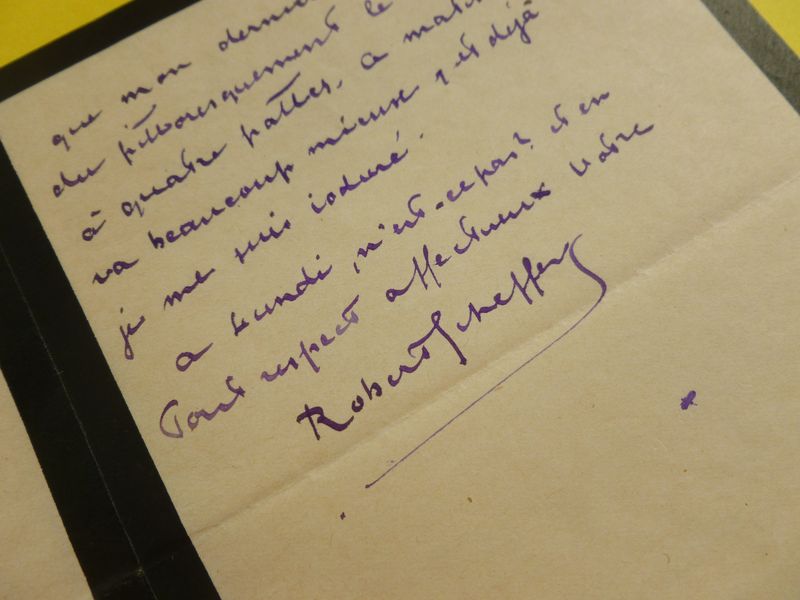 que mon dernie
du pittoresquement le
à quatre pattes. a mati
va beaucoup mieux, et déjà
je me suis ioduré.
a Lundi, n'est-ce pas? et en
Tout respect affectueux Votre
Robert Scheffer